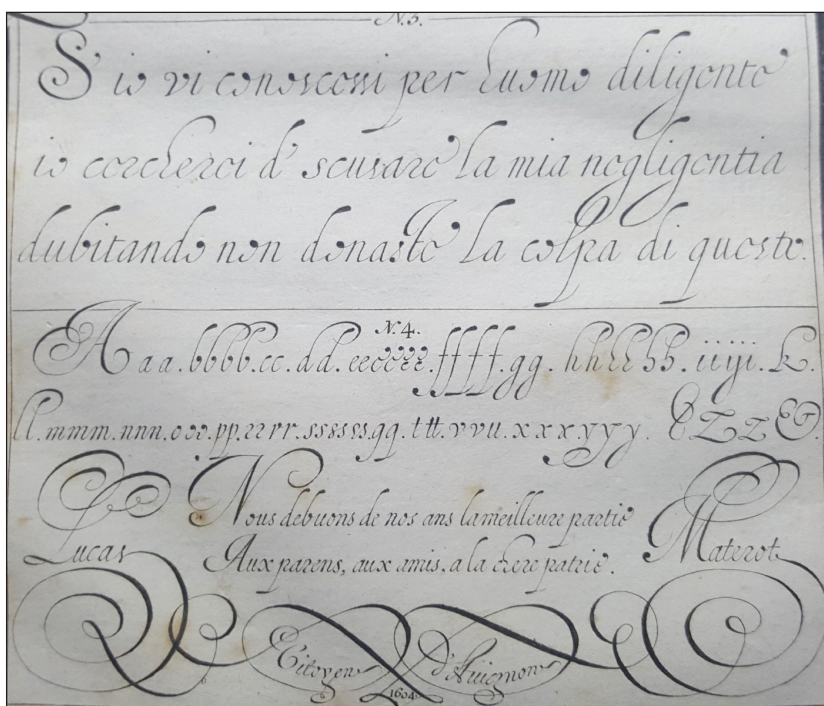 N. 3.
S' io vi conoscessi per huomo diligente
io cercherei d' scusare la mia negligentia
dubitando non donaste la colpa di queste.
N. 4.
A aa.bbbb.cc.dd.eeeeeee.ffff.gg.hhhhhh.iiyi.k.
ll.mmm.nnn.ooo.pp.rrrr.sssssss.qq.ttt.vvu.xxx.yyy. & Z z &.
Nous debuons de nos ans la meilleure partie
Lucas Aux parens, aux amis, a la chere patrie. Materot
Citoyen d'Auignon
1604